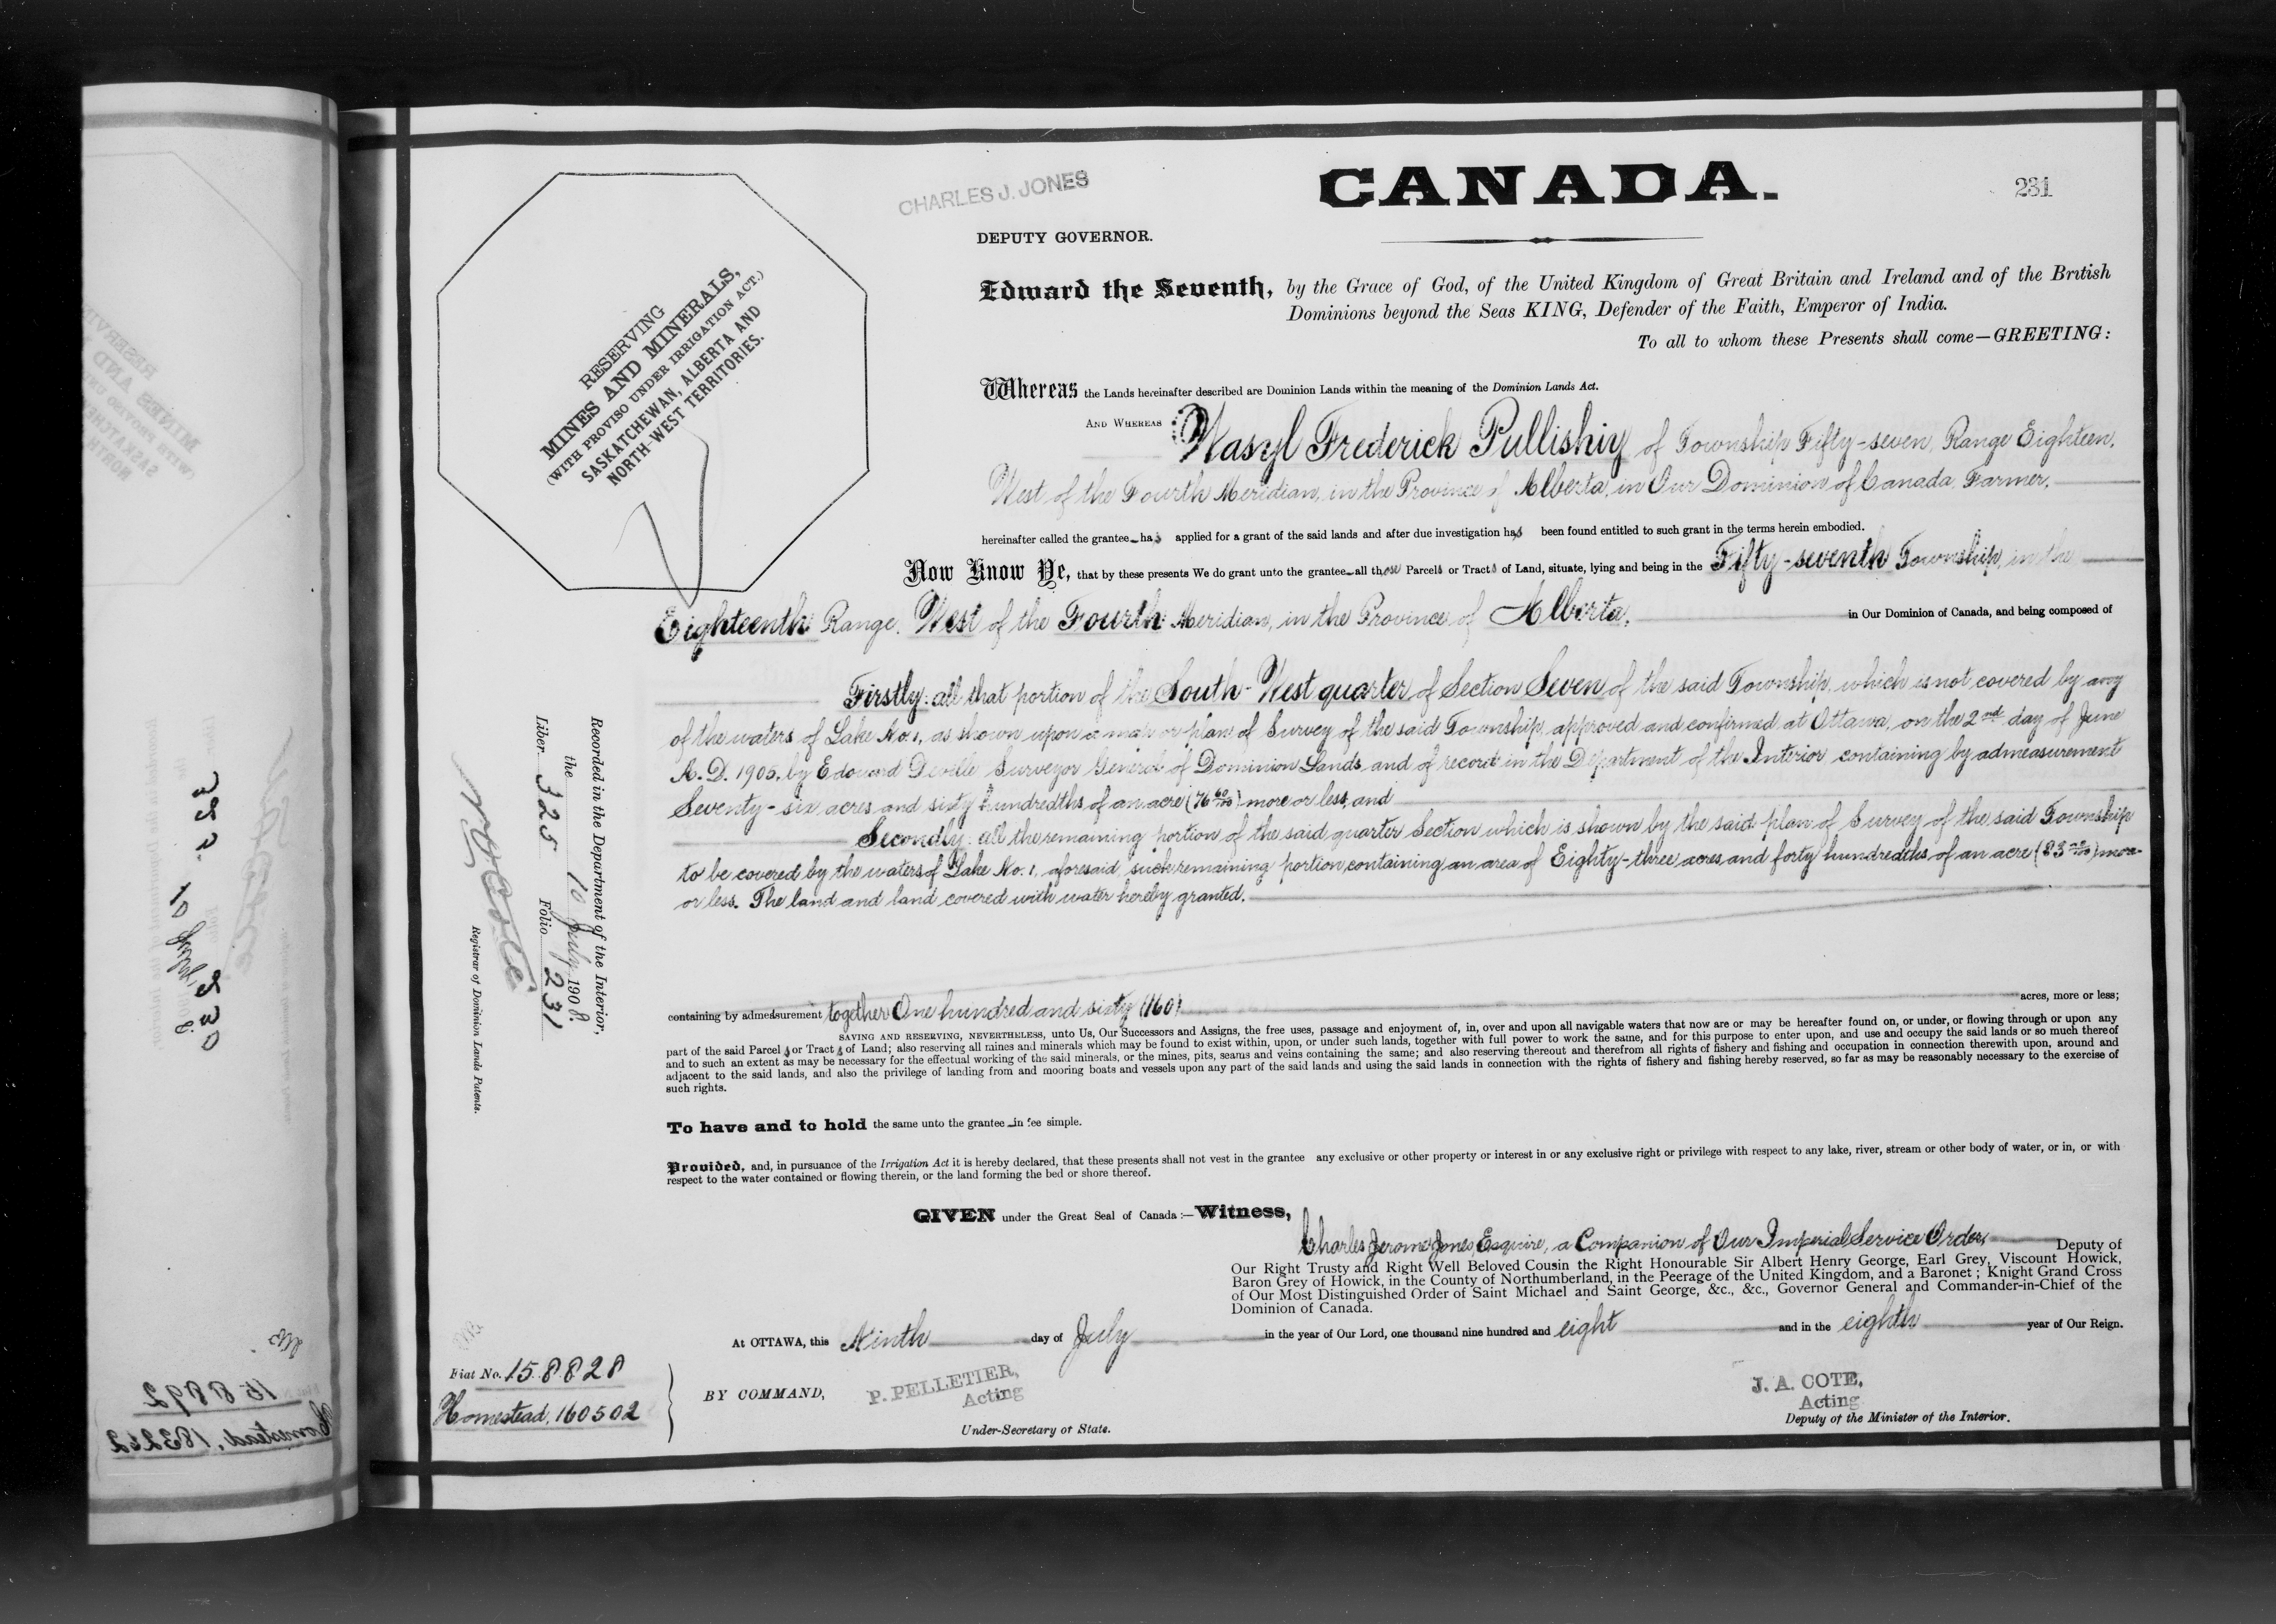 CANADA.
231
CHARLES J. JONES
DEPUTY GOVERNOR.
RESERVING
MINES AND MINERALS,
(WITH PROVISO UNDER IRRIGATION ACT.)
SASKATCHEWAN, ALBERTA AND
NORTH-WEST TERRITORIES.
Edward the Seventh, by the Grace of God, of the United Kingdom of Great Britain and Ireland and of the British
Dominions beyond the Seas KING, Defender of the Faith, Emperor of India.
To all to whom these Presents shall come—GREETING:
Whereas the Lands hereinafter described are Dominion Lands within the meaning of the Dominion Lands Act.
AND WHEREAS Wasyl Frederick Pullishiy of Township Fifty-seven, Range Eighteen,
West of the Fourth Meridian, in the Province of Alberta, in Our Dominion of Canada, Farmer,
hereinafter called the grantee has applied for a grant of the said lands and after due investigation has been found entitled to such grant in the terms herein embodied.
Now Know Ye, that by these presents We do grant unto the grantee all those Parcels or Tracts of Land, situate, lying and being in the Fifty-seventh Township, in the
Eighteenth Range, West of the Fourth Meridian, in the Province of Alberta, in Our Dominion of Canada, and being composed of
Firstly: all that portion of the South-West quarter of Section Seven of the said Township, which is not covered by any
of the waters of Lake No. 1, as shown upon a map or plan of Survey of the said Township, approved and confirmed at Ottawa, on the 2nd day of June
A.D. 1905, by Edouard Deville Surveyor General of Dominion Lands and of record in the Department of the Interior, containing by admeasurement
Seventy-six acres and sixty hundredths of an acre (76 60/100) more or less, and
Secondly: all the remaining portion of the said quarter Section which is shown by the said plan of Survey of the said Township
to be covered by the waters of Lake No. 1, aforesaid such remaining portion containing an area of Eighty-three acres and forty hundredths of an acre (83 40/100) more
or less. The land and land covered with water hereby granted.
containing by admeasurement together One hundred and sixty (160) acres, more or less;
SAVING AND RESERVING, NEVERTHELESS, unto Us, Our Successors and Assigns, the free uses, passage and enjoyment of, in, over and upon all navigable waters that now are or may be hereafter found on, or under, or flowing through or upon any
part of the said Parcels or Tracts of Land; also reserving all mines and minerals which may be found to exist within, upon, or under such lands, together with full power to work the same, and for this purpose to enter upon, and use and occupy the said lands or so much thereof
and to such an extent as may be necessary for the effectual working of the said minerals, or the mines, pits, seams and veins containing the same; and also reserving thereout and therefrom all rights of fishery and fishing and occupation in connection therewith upon, around and
adjacent to the said lands, and also the privilege of landing from and mooring boats and vessels upon any part of the said lands and using the said lands in connection with the rights of fishery and fishing hereby reserved, so far as may be reasonably necessary to the exercise of
such rights.
To have and to hold the same unto the grantee in fee simple.
Provided, and, in pursuance of the Irrigation Act it is hereby declared, that these presents shall not vest in the grantee any exclusive or other property or interest in or any exclusive right or privilege with respect to any lake, river, stream or other body of water, or in, or with
respect to the water contained or flowing therein, or the land forming the bed or shore thereof.
GIVEN under the Great Seal of Canada:—Witness,
Charles Jerome Jones, Esquire, a Companion of Our Imperial Service Order, Deputy of
Our Right Trusty and Right Well Beloved Cousin the Right Honourable Sir Albert Henry George, Earl Grey, Viscount Howick,
Baron Grey of Howick, in the County of Northumberland, in the Peerage of the United Kingdom, and a Baronet; Knight Grand Cross
of Our Most Distinguished Order of Saint Michael and Saint George, &c., &c., Governor General and Commander-in-Chief of the
Dominion of Canada.
At OTTAWA, this Ninth day of July in the year of Our Lord, one thousand nine hundred and eight and in the eighth year of Our Reign.
BY COMMAND,
P. PELLETIER,
Acting
Under-Secretary of State.
J. A. COTE,
Acting
Deputy of the Minister of the Interior.
Recorded in the Department of the Interior,
the 10 July 1908.
Liber 325 Folio 231
Registrar of Dominion Lands Patents.
Fiat No. 158828
Homestead, 160502
158892
Homestead, 183252